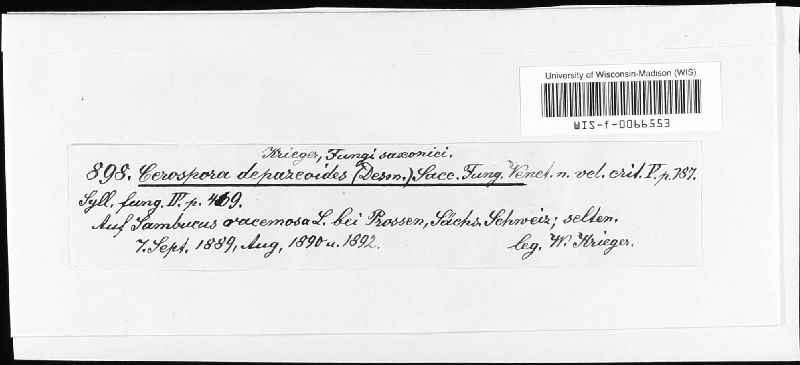 University of Wisconsin-Madison (WIS)
WIS-f-0066553
Krieger, Fungi saxonici.
898. Cerospora depazeoides (Desm.) Sacc. Fung. Venet. n. vel. crit. V. p. 187.
Syll. fung. IV. p. 469.
Auf Sambucus racemosa L. bei Prossen, Sächs. Schweiz; selten.
7. Sept. 1889, Aug, 1890 u. 1892.
leg. W. Krieger.